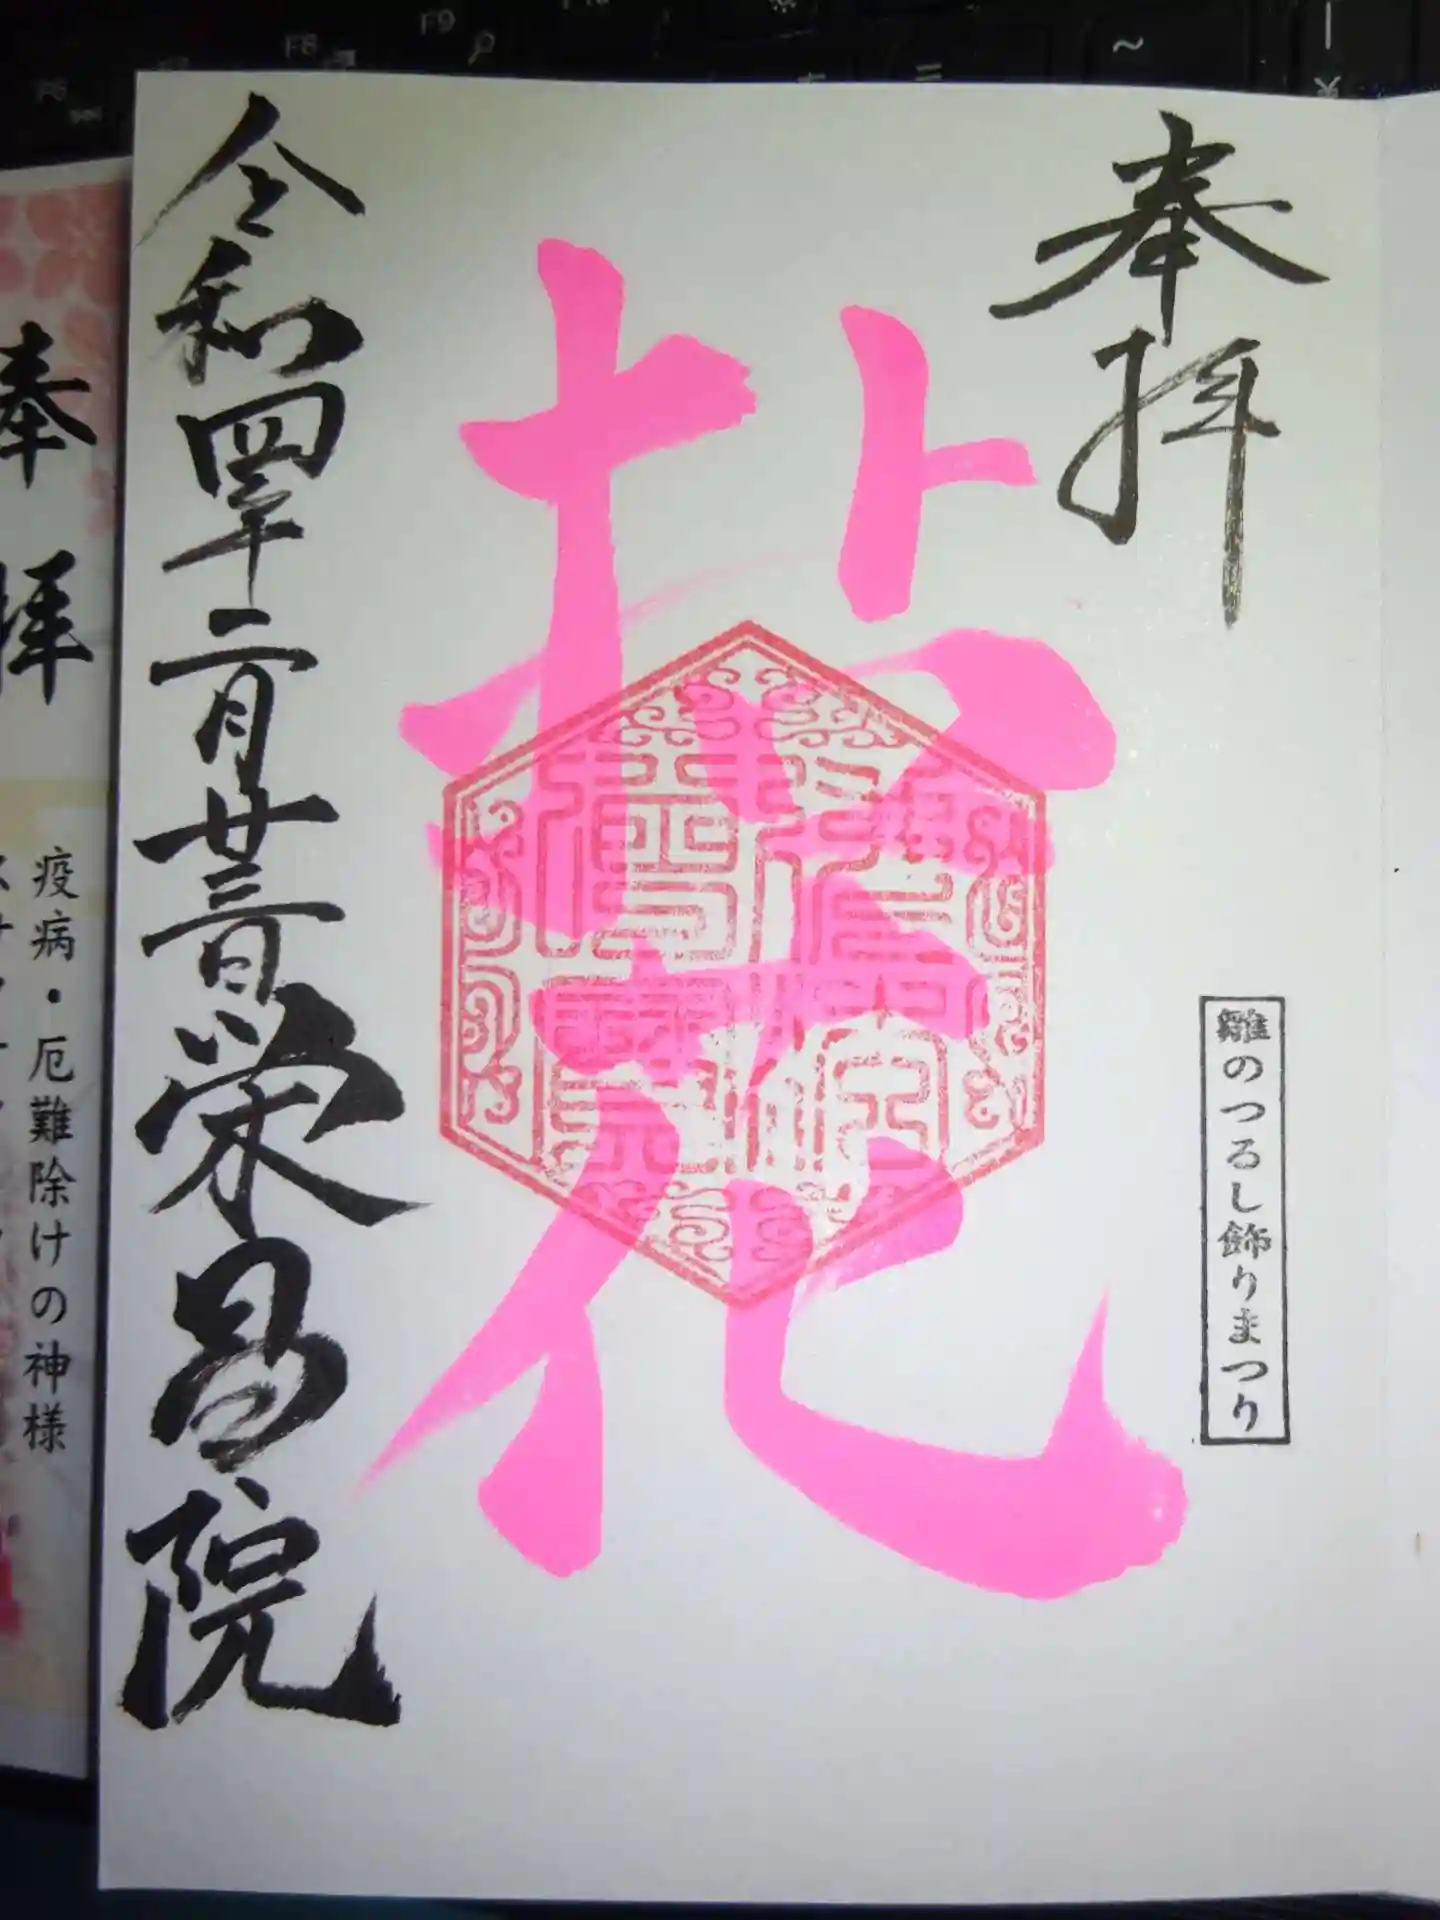 奉拝
雛のつるし飾りまつり
桃花
令和四年二月廿三日栄昌院
奉拝
疫病・厄難除けの神様
F8
F9